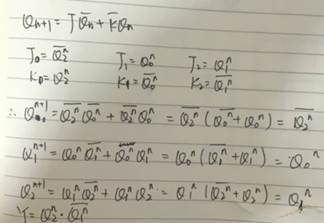 Qn+1 = J Q̅n + K̅ Qn
J₀ = Q̅₂ⁿ J₁ = Q₀ⁿ J₂ = Q₁ⁿ
K₀ = Q₂ⁿ K₁ = Q̅₀ⁿ K₂ = Q̅₁ⁿ
∴ Q₀ⁿ⁺¹ = Q̅₂ⁿ Q̅₀ⁿ + Q̅₂ⁿ Q₀ⁿ = Q̅₂ⁿ (Q̅₀ⁿ + Q₀ⁿ) = Q̅₂ⁿ
Q₁ⁿ⁺¹ = Q₀ⁿ Q̅₁ⁿ + Q₀ⁿ Q₁ⁿ = Q₀ⁿ (Q̅₁ⁿ + Q₁ⁿ) = Q₀ⁿ
Q₂ⁿ⁺¹ = Q₁ⁿ Q̅₂ⁿ + Q₁ⁿ Q₂ⁿ = Q₁ⁿ (Q̅₂ⁿ + Q₂ⁿ) = Q₁ⁿ
Y = Q₂ⁿ · Q̅₁ⁿ